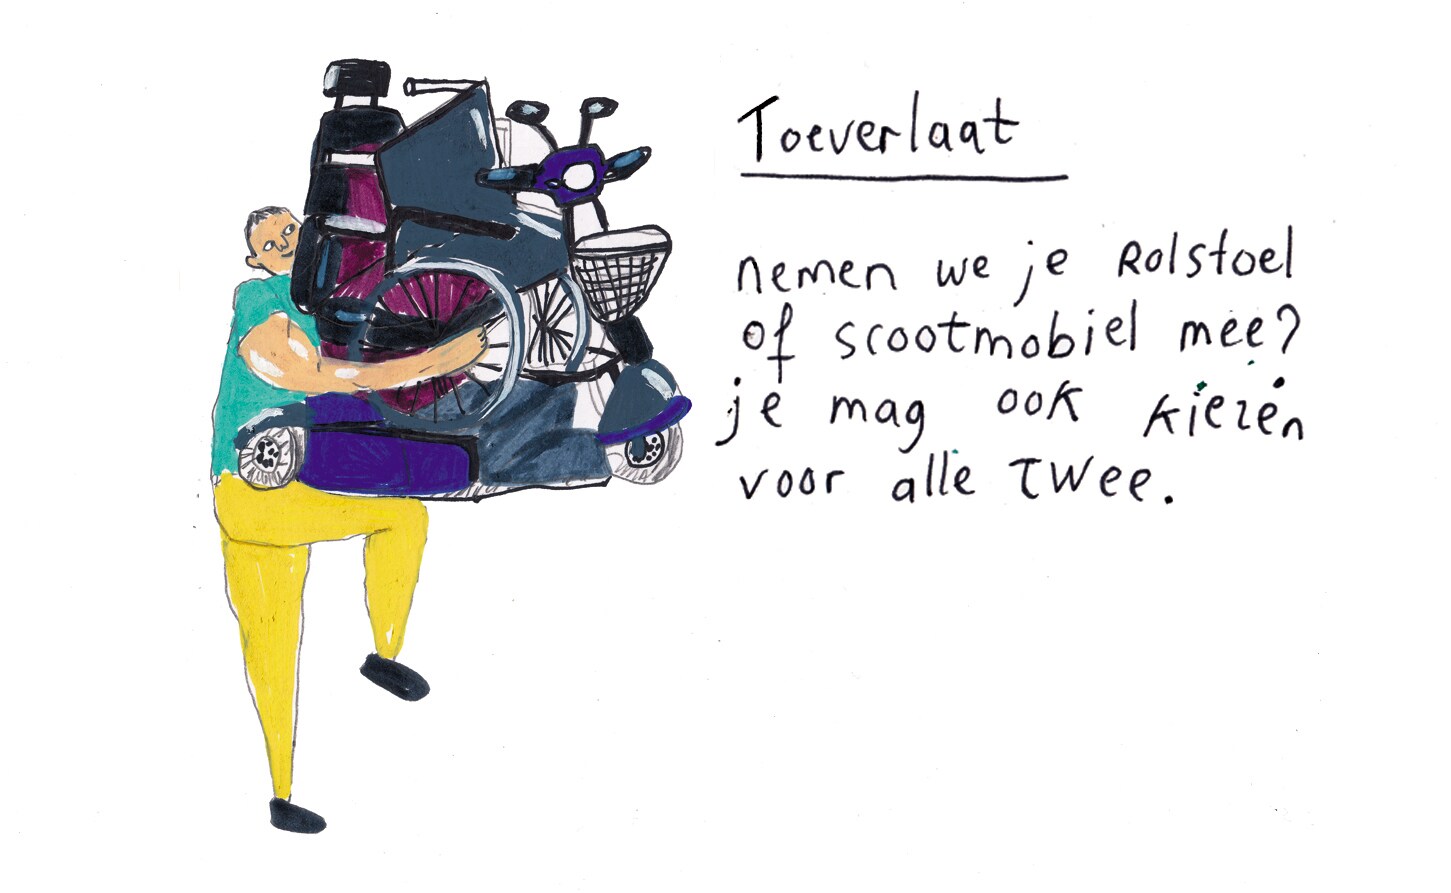 Toeverlaat
nemen we je Rolstoel
of scootmobiel mee?
je mag ook kiezen
voor alle Twee.